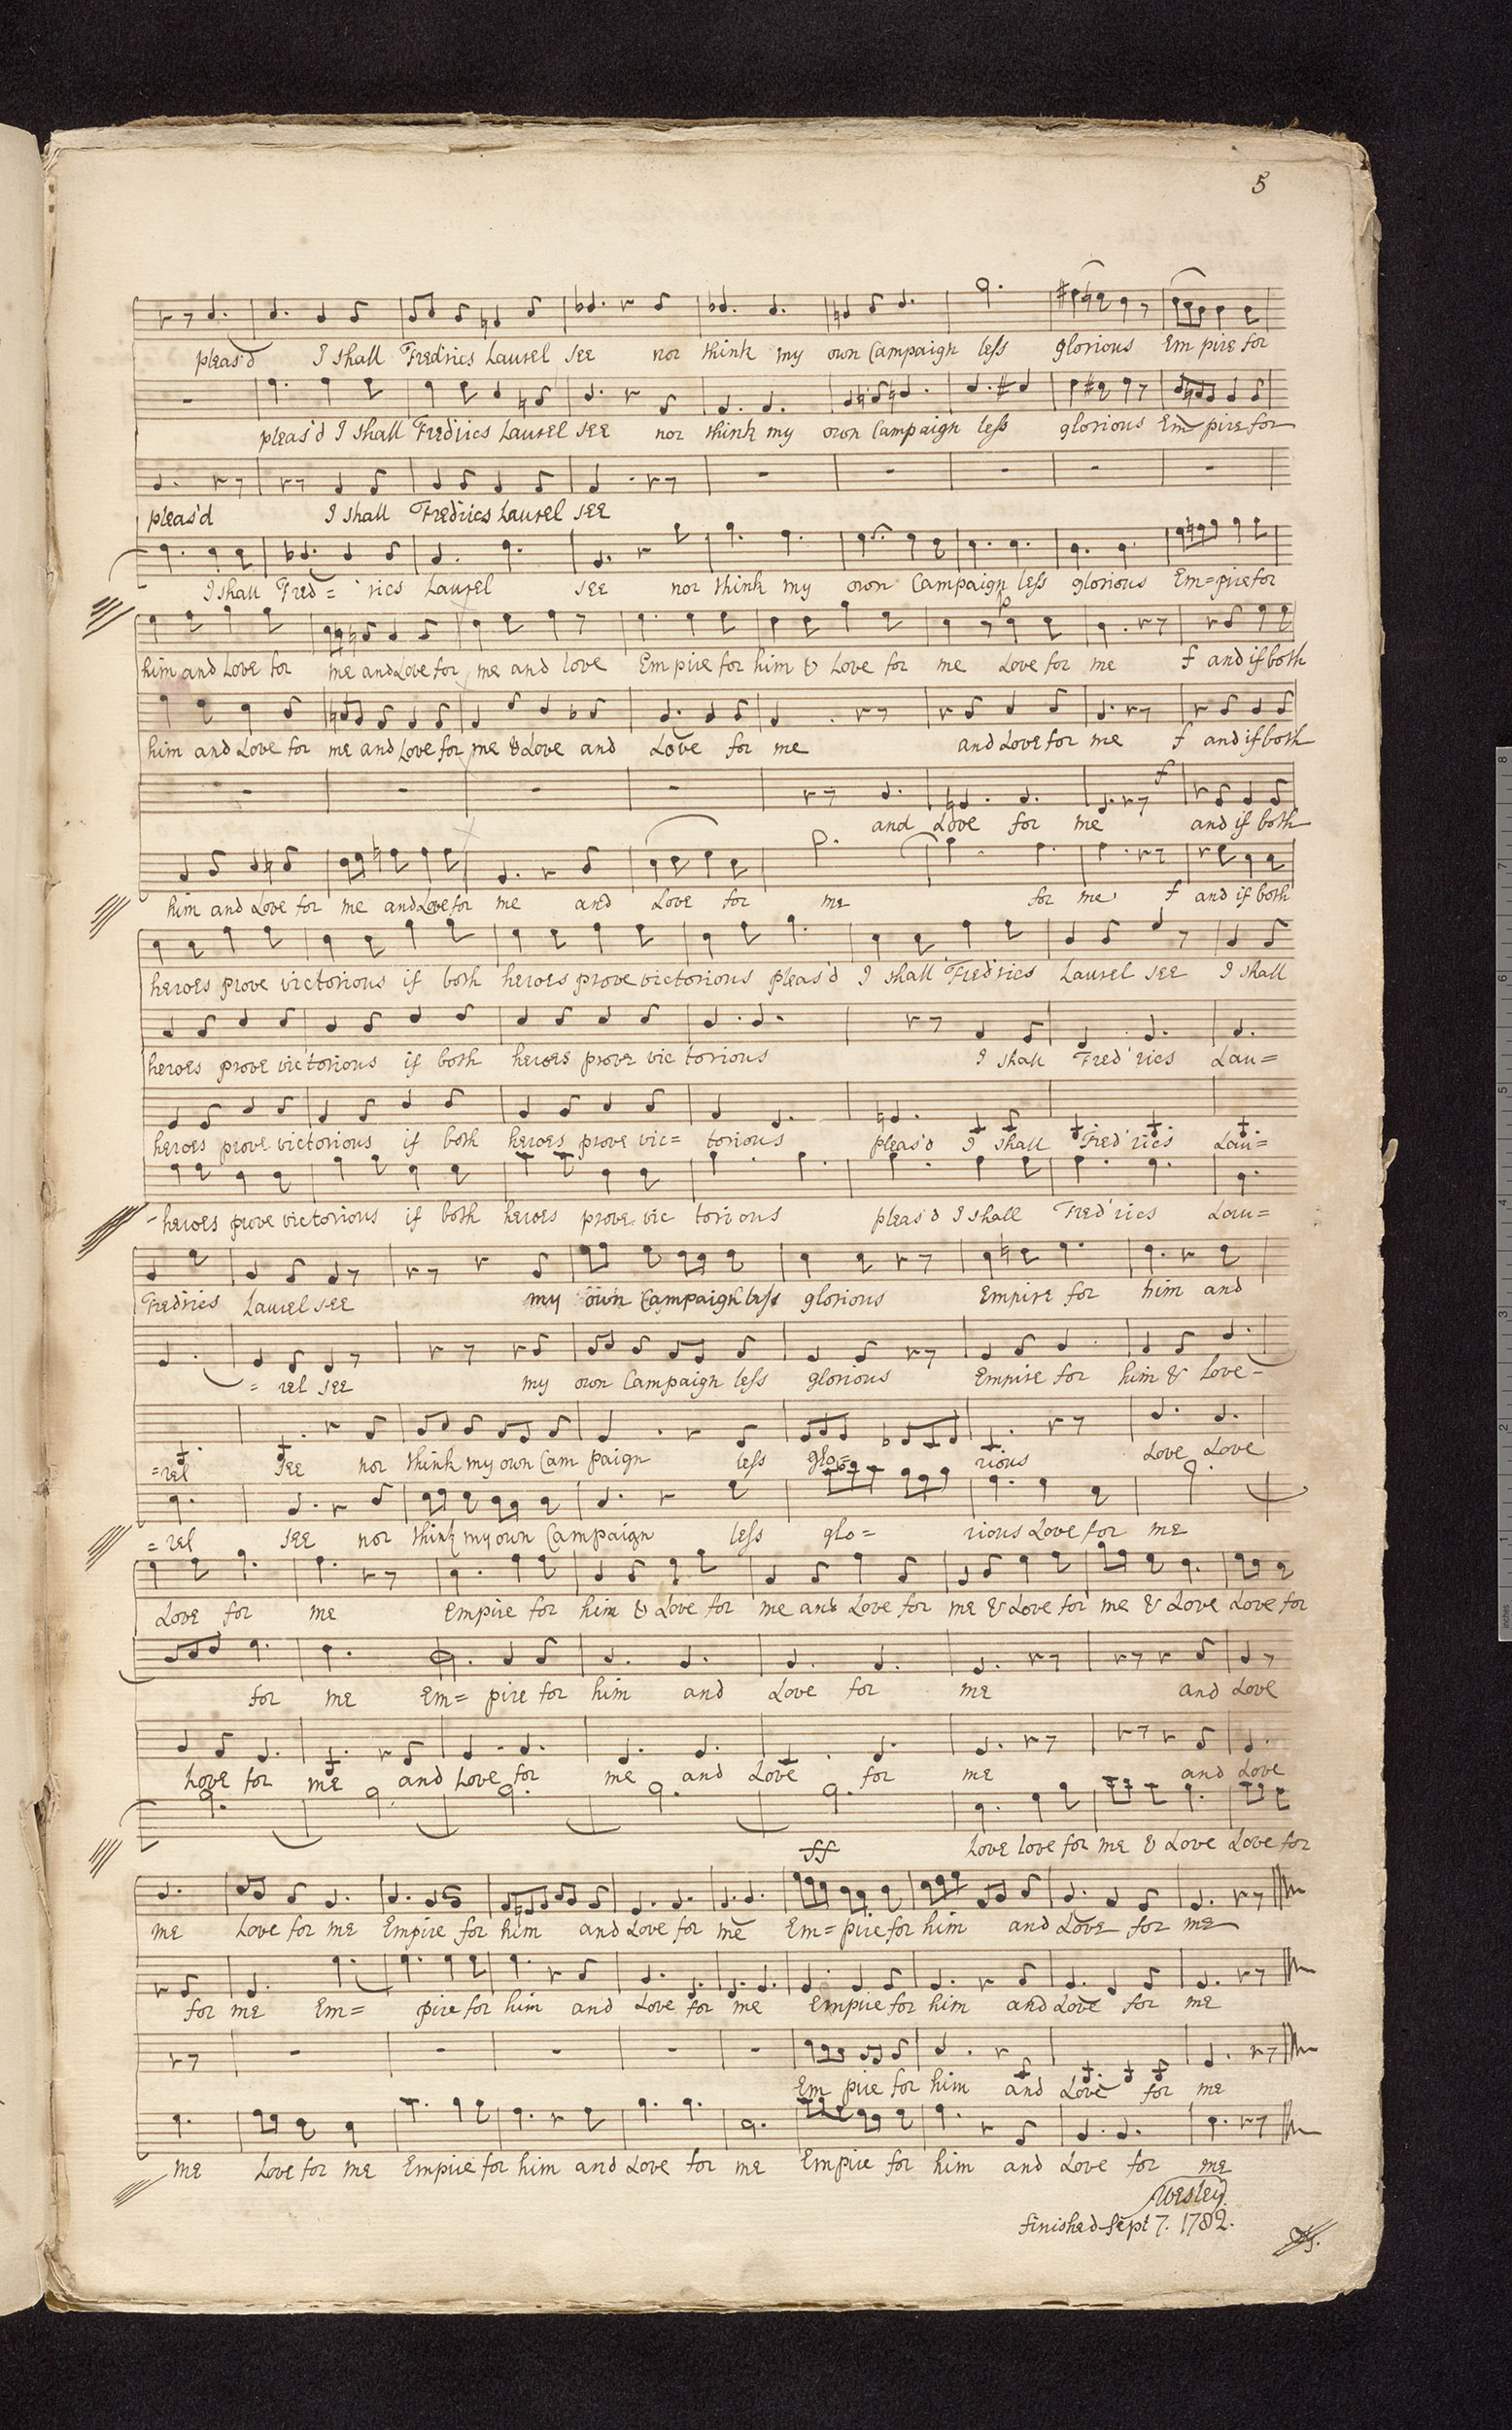 5
pleas'd I shall Fredrics Laurel see nor think my own Campaign less glorious Em pire for
pleas'd I shall Fredrics Laurel see nor think my own Campaign less glorious Em pire for
pleas'd I shall Fredrics Laurel see
I shall Fred = rics Laurel see nor think my own Campaign less glorious Em=pire for
p
him and Love for me and Love for me and love Empire for him & Love for me Love for me f and if both
him and Love for me and Love for me & Love and Love for me and Love for me f and if both
f
and Love for me and if both
him and Love for me and Love for me and Love for me for me f and if both
heroes prove victorious if both heroes prove victorious pleas'd I shall Fredrics Laurel see I shall
heroes prove victorious if both heroes prove vic torious I shall Fred'rics Lau=
heroes prove victorious if both heroes prove vic= torious pleas'd I shall Fred'rics Lau=
heroes prove victorious if both heroes prove vic torious pleas'd I shall Fred'rics Lau=
Fredrics Laurel see my own Campaign less glorious Empire for him and
= rel see my own Campaign less glorious Empire for him & love-
=rel see nor think my own Cam paign less glo= rious Love Love
= rel see nor think my own Campaign less glo= rious Love for me
Love for me Empire for him & Love for me and Love for me & Love for me & Love Love for
for me Em= pire for him and Love for me and Love
Love for me and Love for me and Love for me and Love
Love love for me & Love Love for
ff
me Love for me Empire for him and Love for me Em= pire for him and Love for me
for me Em= pire for him and Love for me Empire for him and Love for me
Em pire for him and Love for me
me Love for me Empire for him and Love for me Empire for him and Love for me
SWesley
finished Sept 7. 1782.